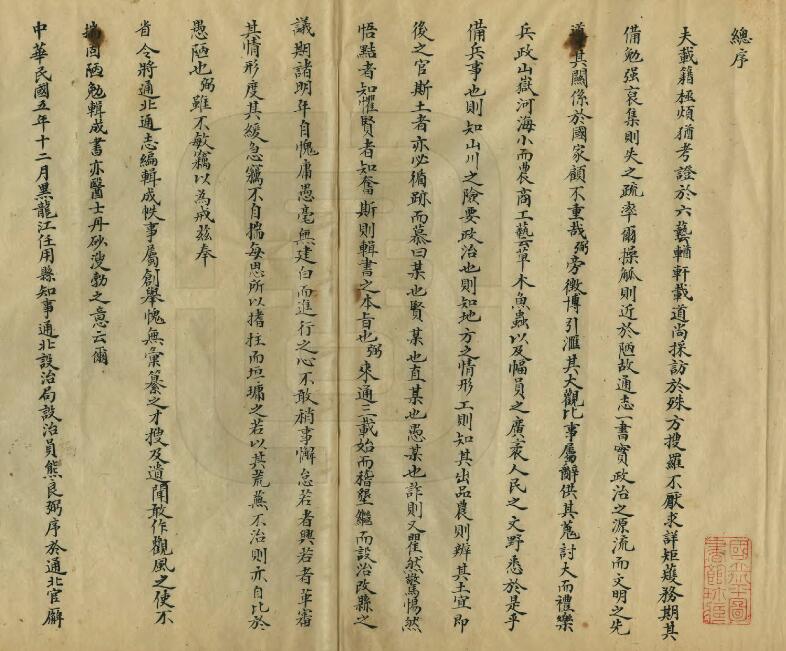 總序
夫載籍極煩猶考證於六藝輶軒載道尚採訪於殊方搜羅不厭求詳矩矱務期其
備勉强裒集則失之疏率爾操觚則近於陋故通志一書實政治之源流而文明之先
導其關係於國家顧不重哉弼旁徵博引滙其大觀比事屬辭供其蒐討大而禮樂
兵政山嶽河海小而農商工藝草木魚蟲以及幅員之廣袤人民之文野悉於是乎
備兵事也則知山川之險要政治也則知地方之情形工則知其出品農則辨其土宜即
後之官斯土者亦必循跡而慕曰某也賢某也直某也愚某也詐則又瞿然驚惕然
悟黠者知懼賢者知奮斯則輯書之本旨也弼來通三載始而稽墾繼而設治改縣之
議期諸明年自愧庸愚毫無建白而進行之心不敢稍事懈怠若者興若者革審
其情形度其緩急竊不自揣每思所以搘拄而垣墉之若以其荒蕪不治則亦自比於
愚陋也弼雖不敏竊以為戒茲奉
省令將通北通志編輯成帙事屬創舉愧無彙纂之才搜及遺聞敢作觀風之使不
揣固陋勉輯成書亦醫士丹砂溲勃之意云爾
中華民國五年十二月黑龍江任用縣知事通北設治局設治員熊良弼序於通北官廨
國立北平圖書館珍藏